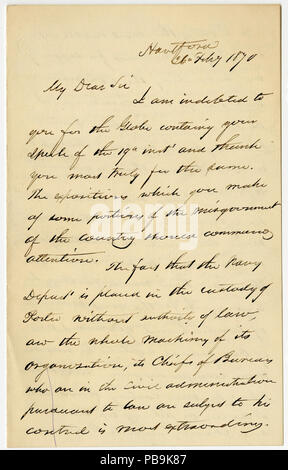 Hartford
26 Feby 1870
My Dear Sir
I am indebted to
you for the Globe containg your
speech of the 19th inst and thank
you most truly for the same.
The exposition which you make
of some portions of the misgovernment
of the country should command
attention.
The fact that the Navy
Depart is placed in the custody of
Porter without authority of law,
and the whole machinery of its
organization, its Chiefs of Bureau
who are in the Civil administration
pursuant to law are subject to his
control is most extraordinary.
alamy
PB9K87